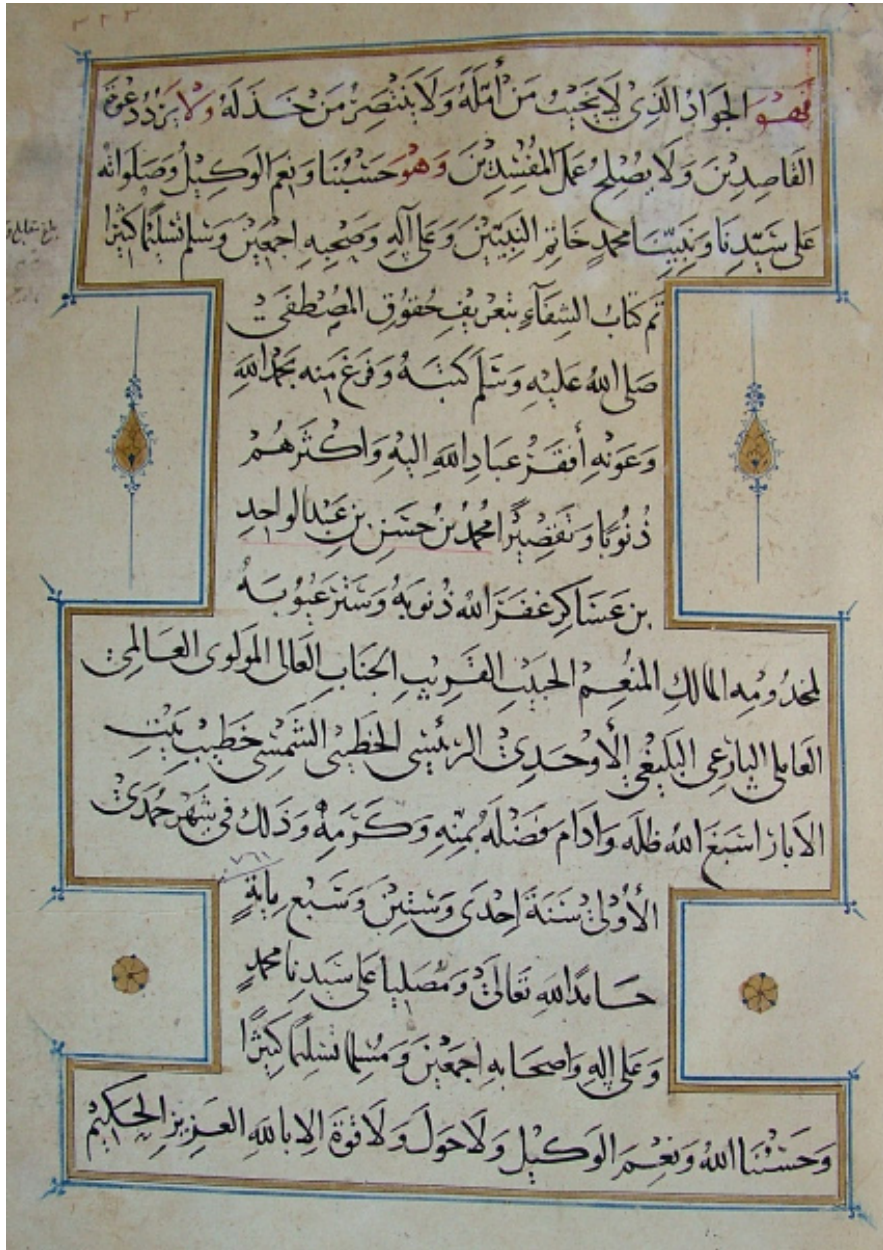 ٢٢٣
فَهُوَ الجَوَادُ الَّذِي لَا يُخَيِّبُ مَنْ أَمَّلَهُ وَلَا يَنْتَصِرُ مَنْ خَذَلَهُ وَلَا يَرُدُّ دَعْوَةَ
القَاصِدِينَ وَلَا يُصْلِحُ عَمَلَ المُفْسِدِينَ وَهُوَ حَسْبُنَا وَنِعْمَ الوَكِيلُ وَصَلَوَاتُهُ
عَلَى سَيِّدِنَا وَنَبِيِّنَا مُحَمَّدٍ خَاتِمِ النَّبِيِّينَ وَعَلَى آلِهِ وَصَحْبِهِ اجْمَعِينَ وَسَلَّمَ تَسْلِيمًا كَثِيرًا
تم كتاب الشِّفَآءِ بتعريف حُقُوقِ المُصْطَفَى
صَلَّى اللهُ عَلَيْهِ وَسَلَّمَ كَتَبَهُ وَفَرَغَ مِنه بحَمْدِ اللهِ
وَعَوْنِهِ أَفْقَرُ عِبَادِ اللهِ اليْهِ وَاكْثَرهُمْ
ذُنُوبًا وَتَقْصِيرًا مُحَمَّدُ بْنُ حَسَنِ بنِ عَبْدِ الوَاحِدِ
بن عَسَاكِر غَفَرَ الله ذُنوبَهُ وَسَتَرَ عُيُوبَهُ
لمخدُومِهِ المَالكِ المُنعِم الحَبيبِ القَرِيبِ الجَنَابِ العَالى المَوْلَوى العَالِمِي
العَامِلى البَارِعِى البَلِيغى الأَوْحَدِي الرئيسِى الخَطِيبى الشَّمْسِى خَطِيبِ بَيْتِ
الاَبَار اسْبَغَ اللهُ ظله وَادَام فَضْلَهُ بمنِهِ وَكَرَمِهِ وَذَلِك فى شهرِ جُمَدَى
٧٦١
الأُولَى سَنَةَ اِحْدَى وَسِتِينَ وَسَبْع مِايَةٍ
حَامدًا للهِ تَعَالَى وَمُصَلِيا عَلَى سَيِّدِنَا مُحَمَّدٍ
وَعَلَى اٰلِهِ وَاصْحَابهِ اجْمَعِينَ وَمُسلِمًا تَسْلِيمًا كَثِيرًا
وَحَسْبُنَا اللهُ وَنِعْمَ الوَكِيل وَلَا حَوْلَ وَلَا قُوَةَ اِلا بِاللهِ العَزِيزِ الحَكِيْمِ